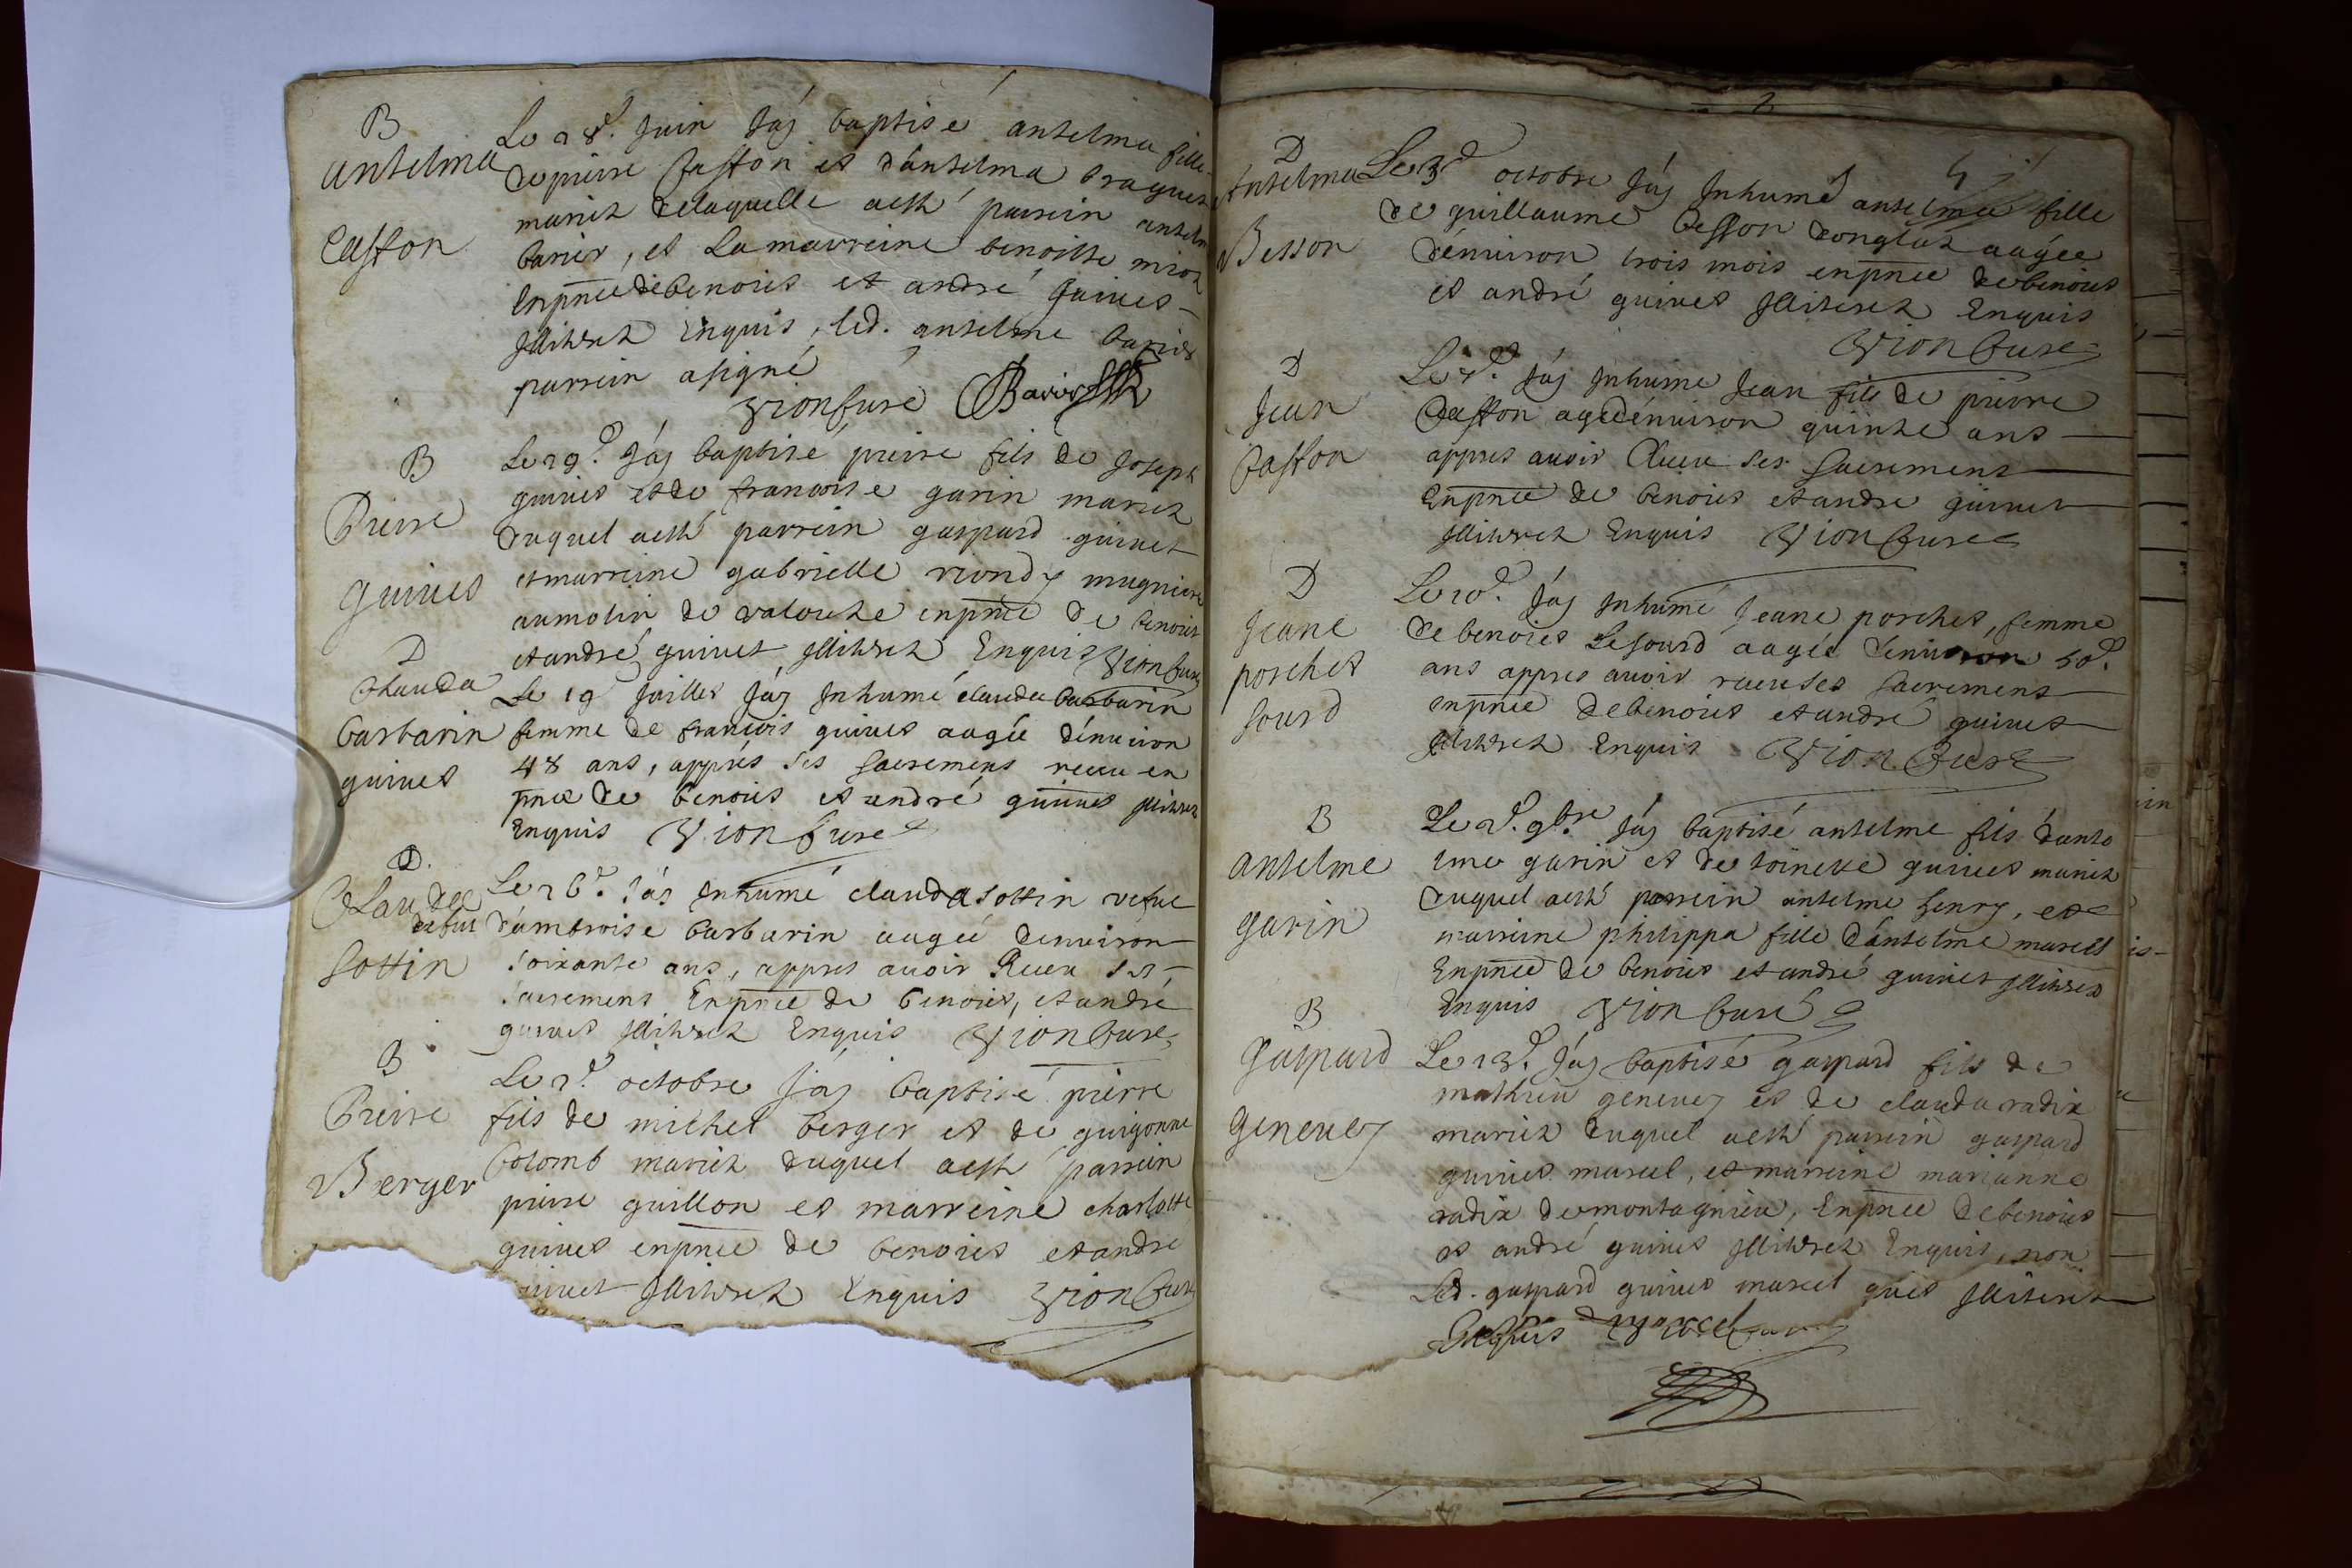 B
Antelma
Caston
Le 28e. Juin Jáy baptisé antelma fille
de pierre Caston et d'antelma dragues
mariez de laquelle a esté parrein antelm
barier, et La marreine benoitte
Enpnce de benoict et andré guiuet
Jlliterez Enquis, led. antelme barier
parrein a signé
Vion Curé Barier
B
Pierre
guiuet
Le 29e. Jáy baptisé pierre fils de Joseph
guiuet et de francoise garin mariez
duquel a esté parrein gaspard guiuet
et marreine gabrielle riondy mugniere
au molin de enpnce de benoict
et andré guiuet Jlliterez Enquis Vion Curé
D
Clauda
barbarin
guiuet
Le 19 Juillet Jáy Jnhumé clauda barbarin
femme de francois guiuet aagée d'enuiron
48 ans, apprés ses sacremens receu en
pnce de benoict et andré guiuet Jlliterez
Enquis Vion Curé
D.
Claudaz
vefue
Sottin
Le 26e. Jáy Jnhumé clauda sottin vefue
d'ambroise barbarin aagée denuiron
soixante ans, appres auoir Receu ses
sacremens Enpnce de benoict, et andré
guiuet Jlliterez Enquis Vion Curé
B
Pierre
Berger
Le 2e. octobre Jáy baptisé pierre
fils de michel berger et de guigonne
Colomb mariez duquel a esté parrein
pierre guillon et marreine charlotte
guiuet enpnce de benoict et andre
uiuet Jlliterez Enquis Vion Curé
D
Antelma
Besson
Le 3e octobre Jáy Jnhumé antelma fille
de guillaume besson aagée
d'enuiron trois mois enpnce de benoict
et andré guiuet Jlliterez Enquis
Vion Curé
D
Jean
Caston
Le 7e. Jáy Jnhumé Jean fils de pierre
Caston agé d'enuiron quinze ans
appres auoir Receu ses sacremens
Enpnce de benoict et andre guiuet
Jlliterez Enquis Vion Curé
D
Jeane
porchet
Sourd
Le 10e. Jáy Jnhumé Jeane porchet, femme
de benoict Lesourd aagée d'enuiron 50e.
ans appres auoir receu ses sacremens
enpnce de benoict et andré guiuet
Jlliterez Enquis Vion Curé
B
antelme
garin
Le 2e. 9bre Jáy baptisé antelme fils d'anto
ine garin et de toinette guiuet mariez
duquel a esté parrein antelme henry, et
marreine philippa fille d'antelme
Enpnce de benoict et andré guiuet Jlliterez
Enquis Vion Curé
B
Gaspard
Geneuey
Le 13e. Jáy baptisé gaspard fils de
mathieu geneuey et de clauda radix
mariez duquel a esté parrein gaspard
guiuet marcel, et marreine marianne
radix de montagnieu, Enpnce de benoict
et andré guiuet Jlliterez Enquis, non
Led. gaspard guiuet marcel Jlliterez
Enquis